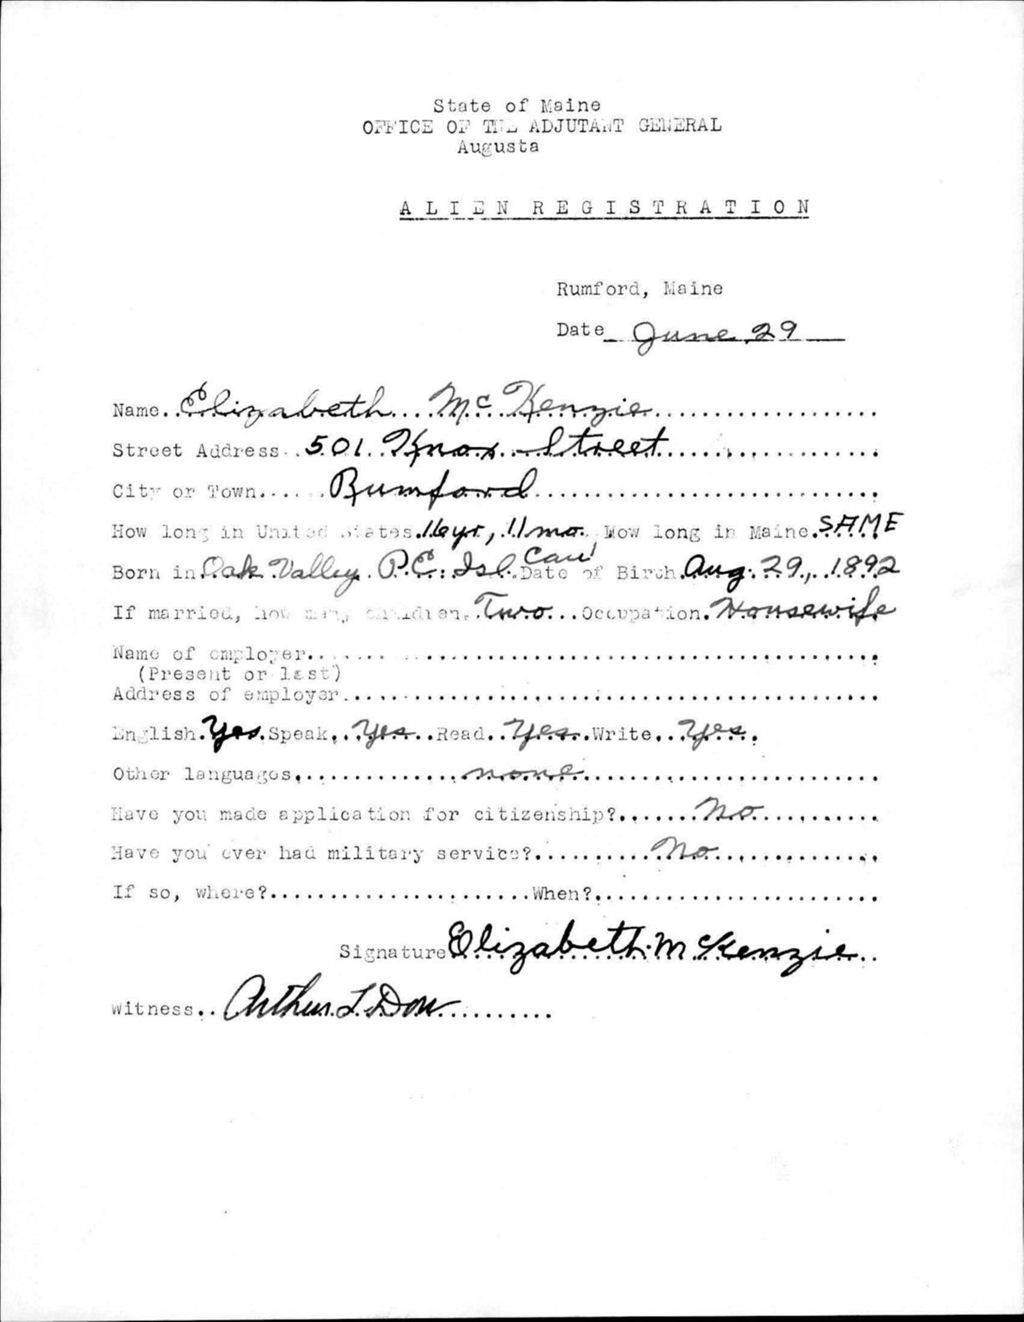 State of Maine
OFFICE OF THE ADJUTANT GENERAL
Augusta
ALIEN REGISTRATION
Rumford, Maine
Date June 29
Name Elizabeth McKenzie
Street Address 501 Knox Street
City or Town Rumford
How long in United States 16 yr, 11 mo. How long in Maine SAME
Born in Oak Valley P.E. Isl. Can Date of Birth Aug. 29, 1892
If married, how many children Two Occupation Housewife
Name of employer
(Present or last)
Address of employer
English Yes Speak Yes Read Yes Write Yes
Other languages none
Have you made application for citizenship? No
Have you ever had military service? No
If so, where? When?
Signature Elizabeth McKenzie
Witness Arthur L Dow